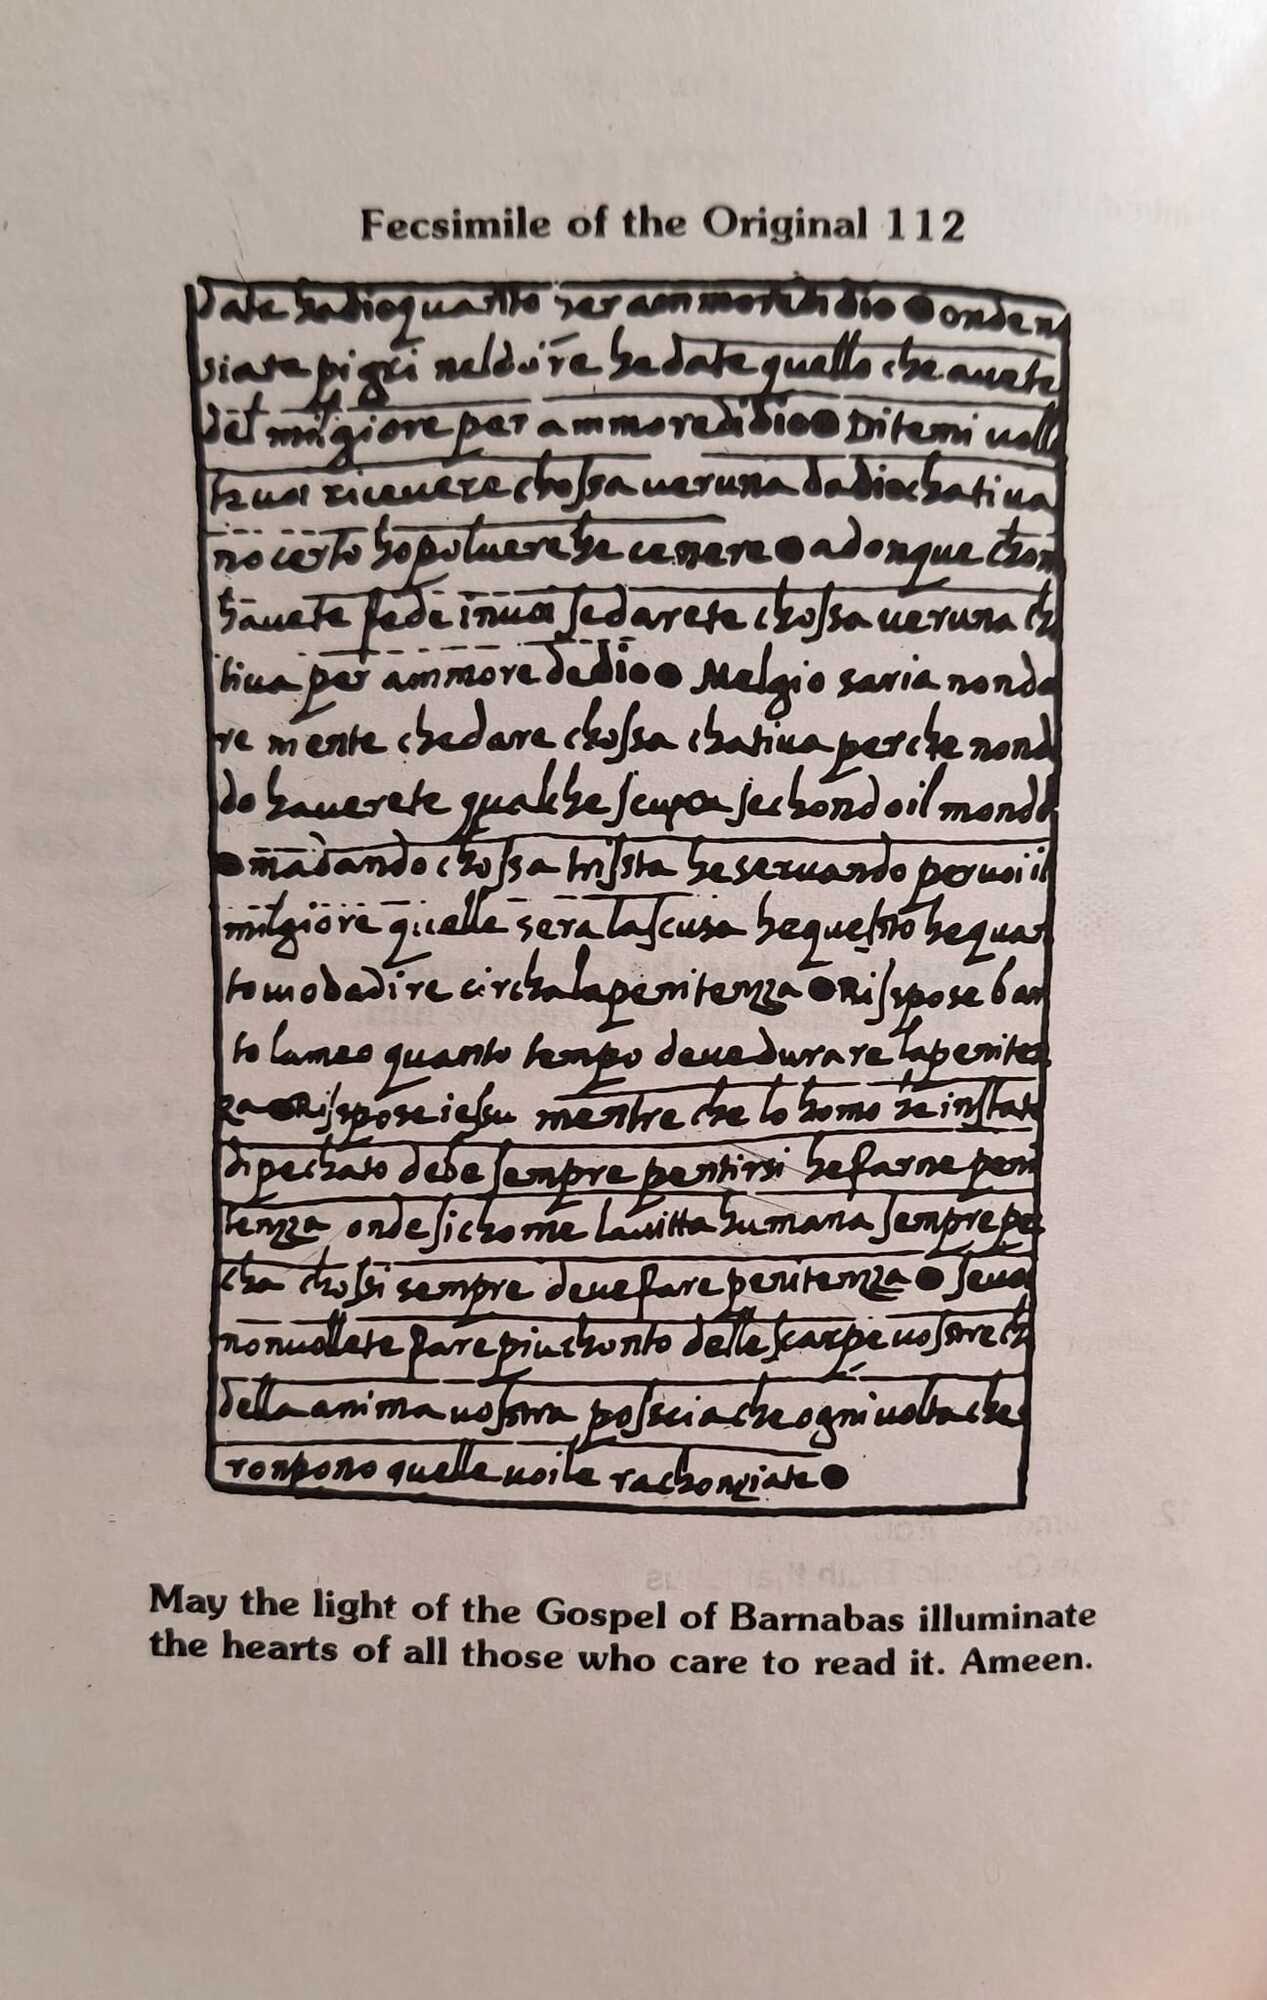 Fecsimile of the Original 112
date hadio quanto per ammoredidio ● onde n
siate pigri neldare he date quello che auete
del milgiore per ammoredidio ● Ditemi uolle
te uoi riceuere chossa ueruna dadio chatiua
no certo ho poluere he cenere ● adonque chom
hauete fede inuoi se darete chossa ueruna cha
tiua per ammore dedio ● Melgio saria nonda
re niente che dare chossa chatiua perche nonda
do hauerete qualche scussa sechondo il mondo
● ma dando chossa trissta he seruando per uoi il
milgiore quelle sera la scusa he quessto he quan
to uio da dire circha la penitenza ● Risspose bar
to lameo quanto tempo deue durare la peniten
za ● Risspose iessu mentre che lo homo he instate
di pechato debe sempre pentirsi he farne peni
tenza onde sichome la uitta humana sempre pe
cha chossi sempre deue fare penitenza ● se uoi
non uollete fare piu chonto delle scarpe uosstre ch
della anima uosstra posscia che ogni uolta che
ronpono quelle uoi le rachonziate ●
May the light of the Gospel of Barnabas illuminate
the hearts of all those who care to read it. Ameen.